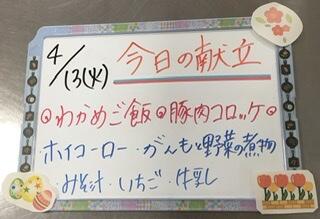 4/13(火) 今日の献立
◎わかめご飯◎豚肉コロッケ◎
・ホイコーロー・がんもと野菜の煮物
・みそ汁・いちご・牛乳